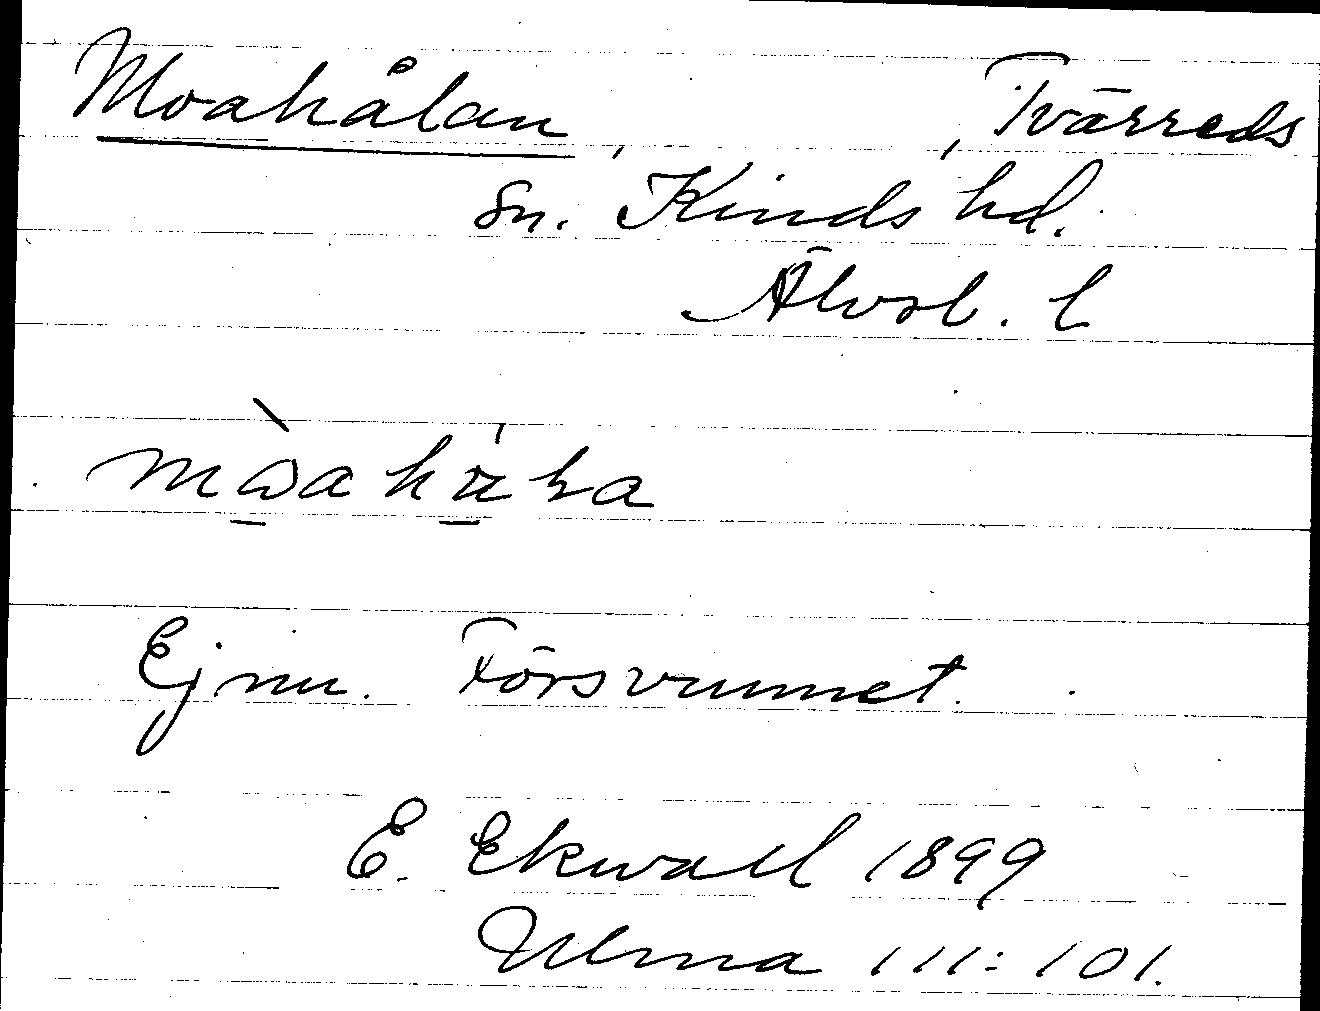 Moahålan, , Tvärreds
sn. Kinds hd.
Älvsb. l
Ej nu. Försvunnet.
E. Ekwall 1899
Ulma 111:101.